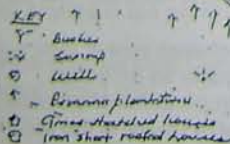 KEY
Bushes
Swamp
Wells
plantations
Grass thatched houses
Iron sheet roofed houses